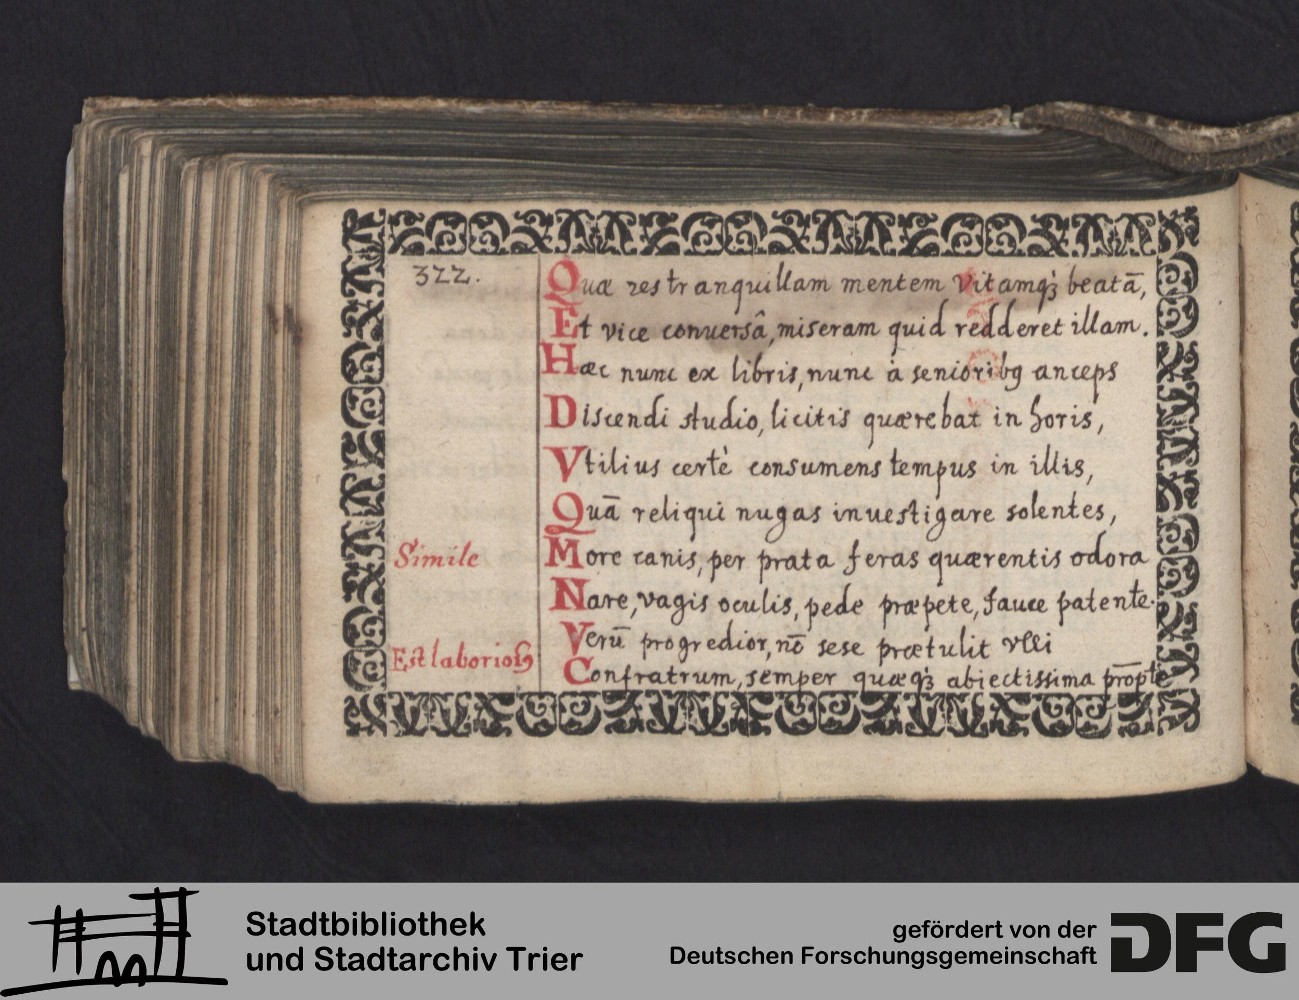 322.
Quæ res tranquillam mentem vitamqꝫ beatā,
Et vice conuersâ, miseram quid redderet illam.
Hæc nunc ex libris, nunc à senioribꝫ anceps
Discendi studio, licitis quærebat in horis,
Vtilius certè consumens tempus in illis,
Quā reliqui nugas inuestigare solentes,
Simile
More canis, per prata feras quærentis odora
Nare, vagis oculis, pede præpete, fauce patente.
Verū progredior, nō sese prætulit vlli
Est laboriosꝰ
Confratrum, semper quæqꝫ abiectissima prōpte
Stadtbibliothek
und Stadtarchiv Trier
gefördert von der
Deutschen Forschungsgemeinschaft
DFG